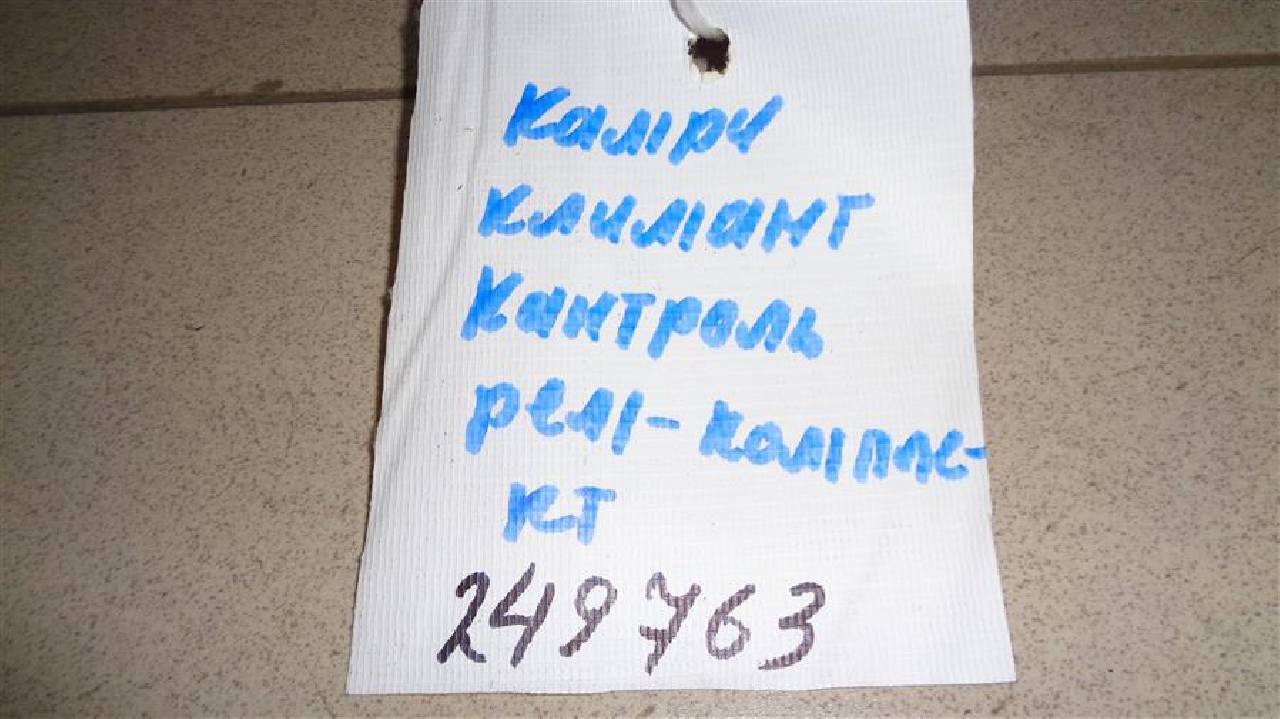 Камри
Климант
Кантроль
релі-компле-
кт
249763